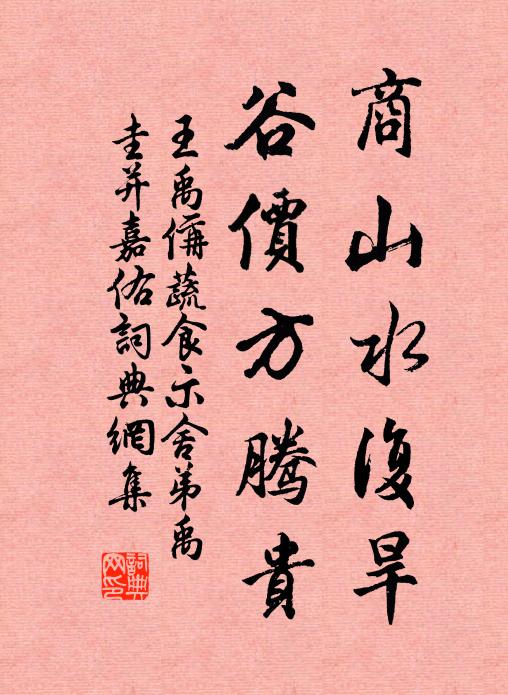 商山水復旱
谷價方騰貴
王禹偁蔬食示舍弟禹
圭并嘉佑詞典網集
詞典網印